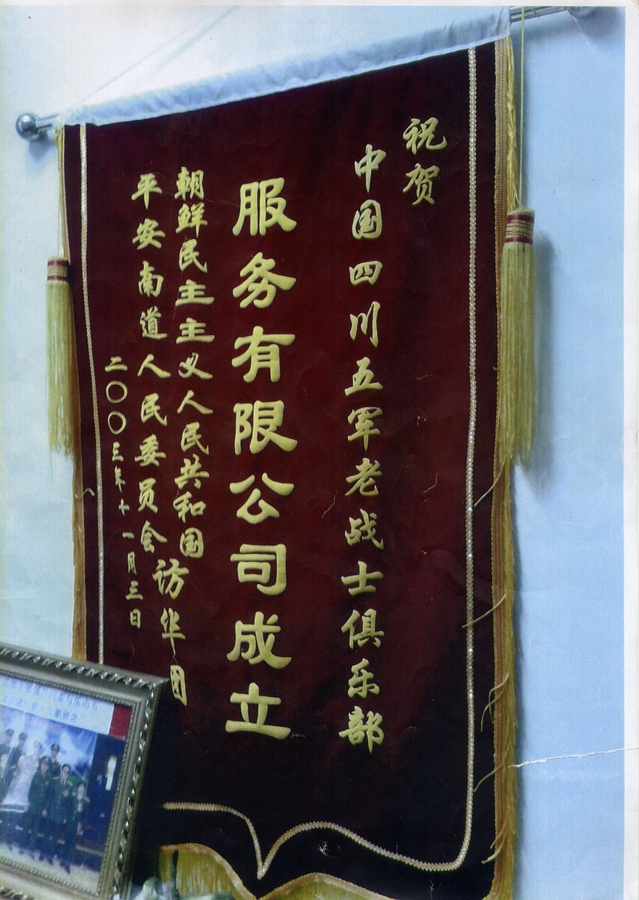 祝贺
中国四川五军老战士俱乐部
服务有限公司成立
朝鲜民主主义人民共和国
平安南道人民委员会
访华团
二〇〇三年十一月三日